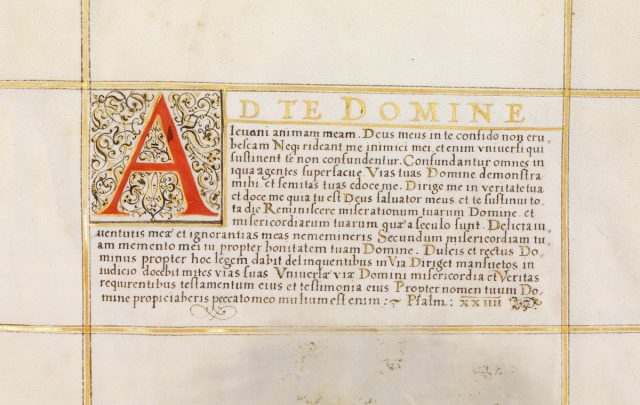 AD TE DOMINE
levavi animam meam. Deus meus in te confido non eru
bescam Neq; rideant me inimici mei, et enim vniversi qui
sustinent te non confundentur. Confundantur omnes in
iqua agentes supervacue. Vias tuas Domine demonstra
mihi et semitas tuas edoce me. Dirige me in veritate tua
et doce me quia tu est Deus salvator meus et te sustinui to
ta die Reminiscere miserationum tuarum Domine. et
misericordiarum tuarum quæ a seculo sunt. Delicta iu
uentutis meæ et ignorantias meas ne memineris Secundum misericordiam tu
am memento mei tu propter bonitatem tuam Domine. Dulcis et rectus Do
minus propter hoc legem dabit delinquentibus in Via Diriget mansuetos in
iudicio docebit mites vias suas Vniversæ viæ Domini misericordia et Veritas
requirentibus testamentum eius et testimonia eius Propter nomen tuum Do
mine propiciaberis peccato meo multum est enim : ~ Psalm : XXIIII